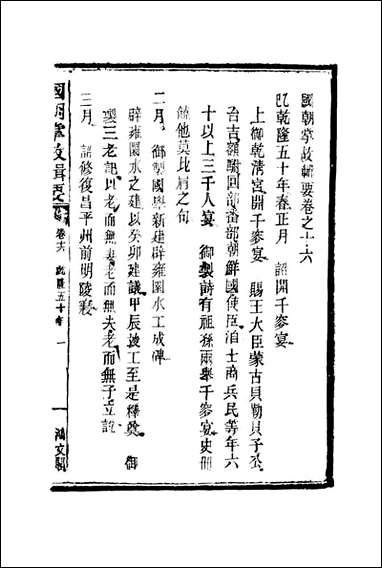 國朝掌故輯要卷之十六
乾隆五十年春正月 詔開千叟宴
上御乾清宮開千叟宴 賜王大臣蒙古貝勒貝子公
台吉額駙回部番部朝鮮國使臣洎士商兵民等年六
十以上三千人宴 御製詩有祖孫兩舉千叟宴史冊
饒他莫比肩之句
二月 御製國學新建辟雍圜水工成碑
辟雍圜水之建以癸卯建議甲辰竣工至是釋奠 御
製三老記以老而無妻老而無夫老而無子立說
三月 詔修復昌平州前明陵寢
國朝掌故輯要 卷十六 乾隆五十年 一 鴻文閣